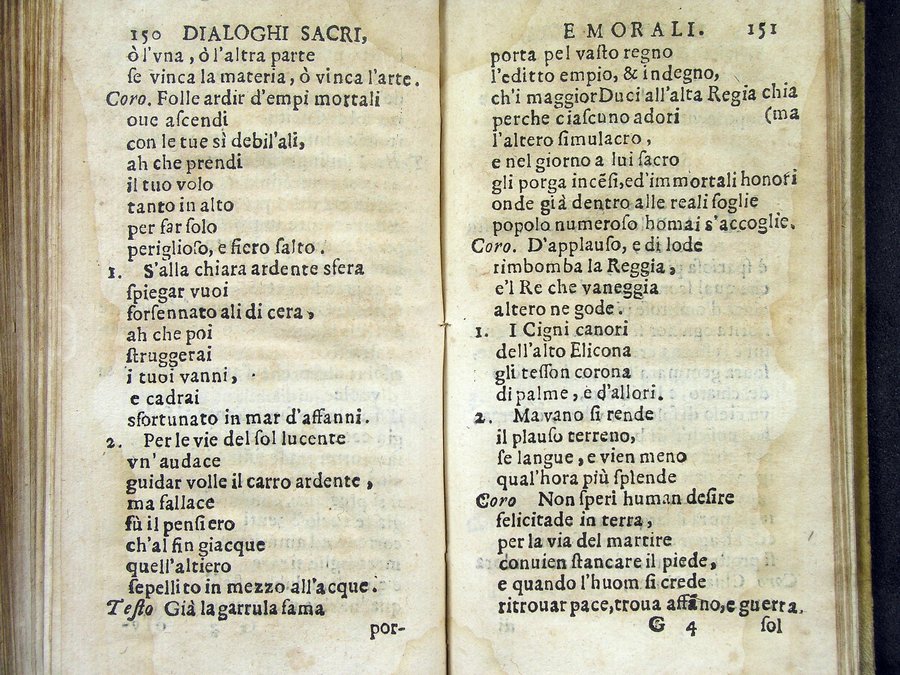 150 DIALOGHI SACRI,
ò l'vna, ò l'altra parte
ſe vinca la materia, ò vinca l'arte.
Coro. Folle ardir d'empi mortali
oue aſcendi
con le tue sì debil'ali,
ah che prendi
il tuo volo
tanto in alto
per far ſolo
periglioſo, e fiero ſalto.
1. S'alla chiara ardente sfera
ſpiegar vuoi
forſennato ali di cera,
ah che poi
ſtruggerai
i tuoi vanni,
e cadrai
sfortunato in mar d'affanni.
2. Per le vie del ſol lucente
vn'audace
guidar volle il carro ardente,
ma fallace
fù il penſiero
ch'al fin giacque
quell'altiero
ſepellito in mezzo all'acque.
Teſto Già la garrula fama
por-
E MORALI. 151
porta pel vaſto regno
l'editto empio, & indegno,
ch'i maggior Duci all'alta Regia chia
perche ciaſcuno adori (ma
l'altero ſimulacro,
e nel giorno a lui ſacro
gli porga incẽſi, ed'immortali honori
onde già dentro alle reali ſoglie
popolo numeroſo homai s'accoglie.
Coro. D'applauſo, e di lode
rimbomba la Reggia,
e'l Re che vaneggia
altero ne gode.
1. I Cigni canori
dell'alto Elicona
gli teſſon corona
di palme, e d'allori.
2. Ma vano ſi rende
il plauſo terreno,
ſe langue, e vien meno
qual'hora più ſplende
Coro Non ſperi human deſire
felicitade in terra,
per la via del martire
conuien ſtancare il piede,
e quando l'huom ſi crede
ritrouar pace, troua affãno, e guerra.
G 4 ſol